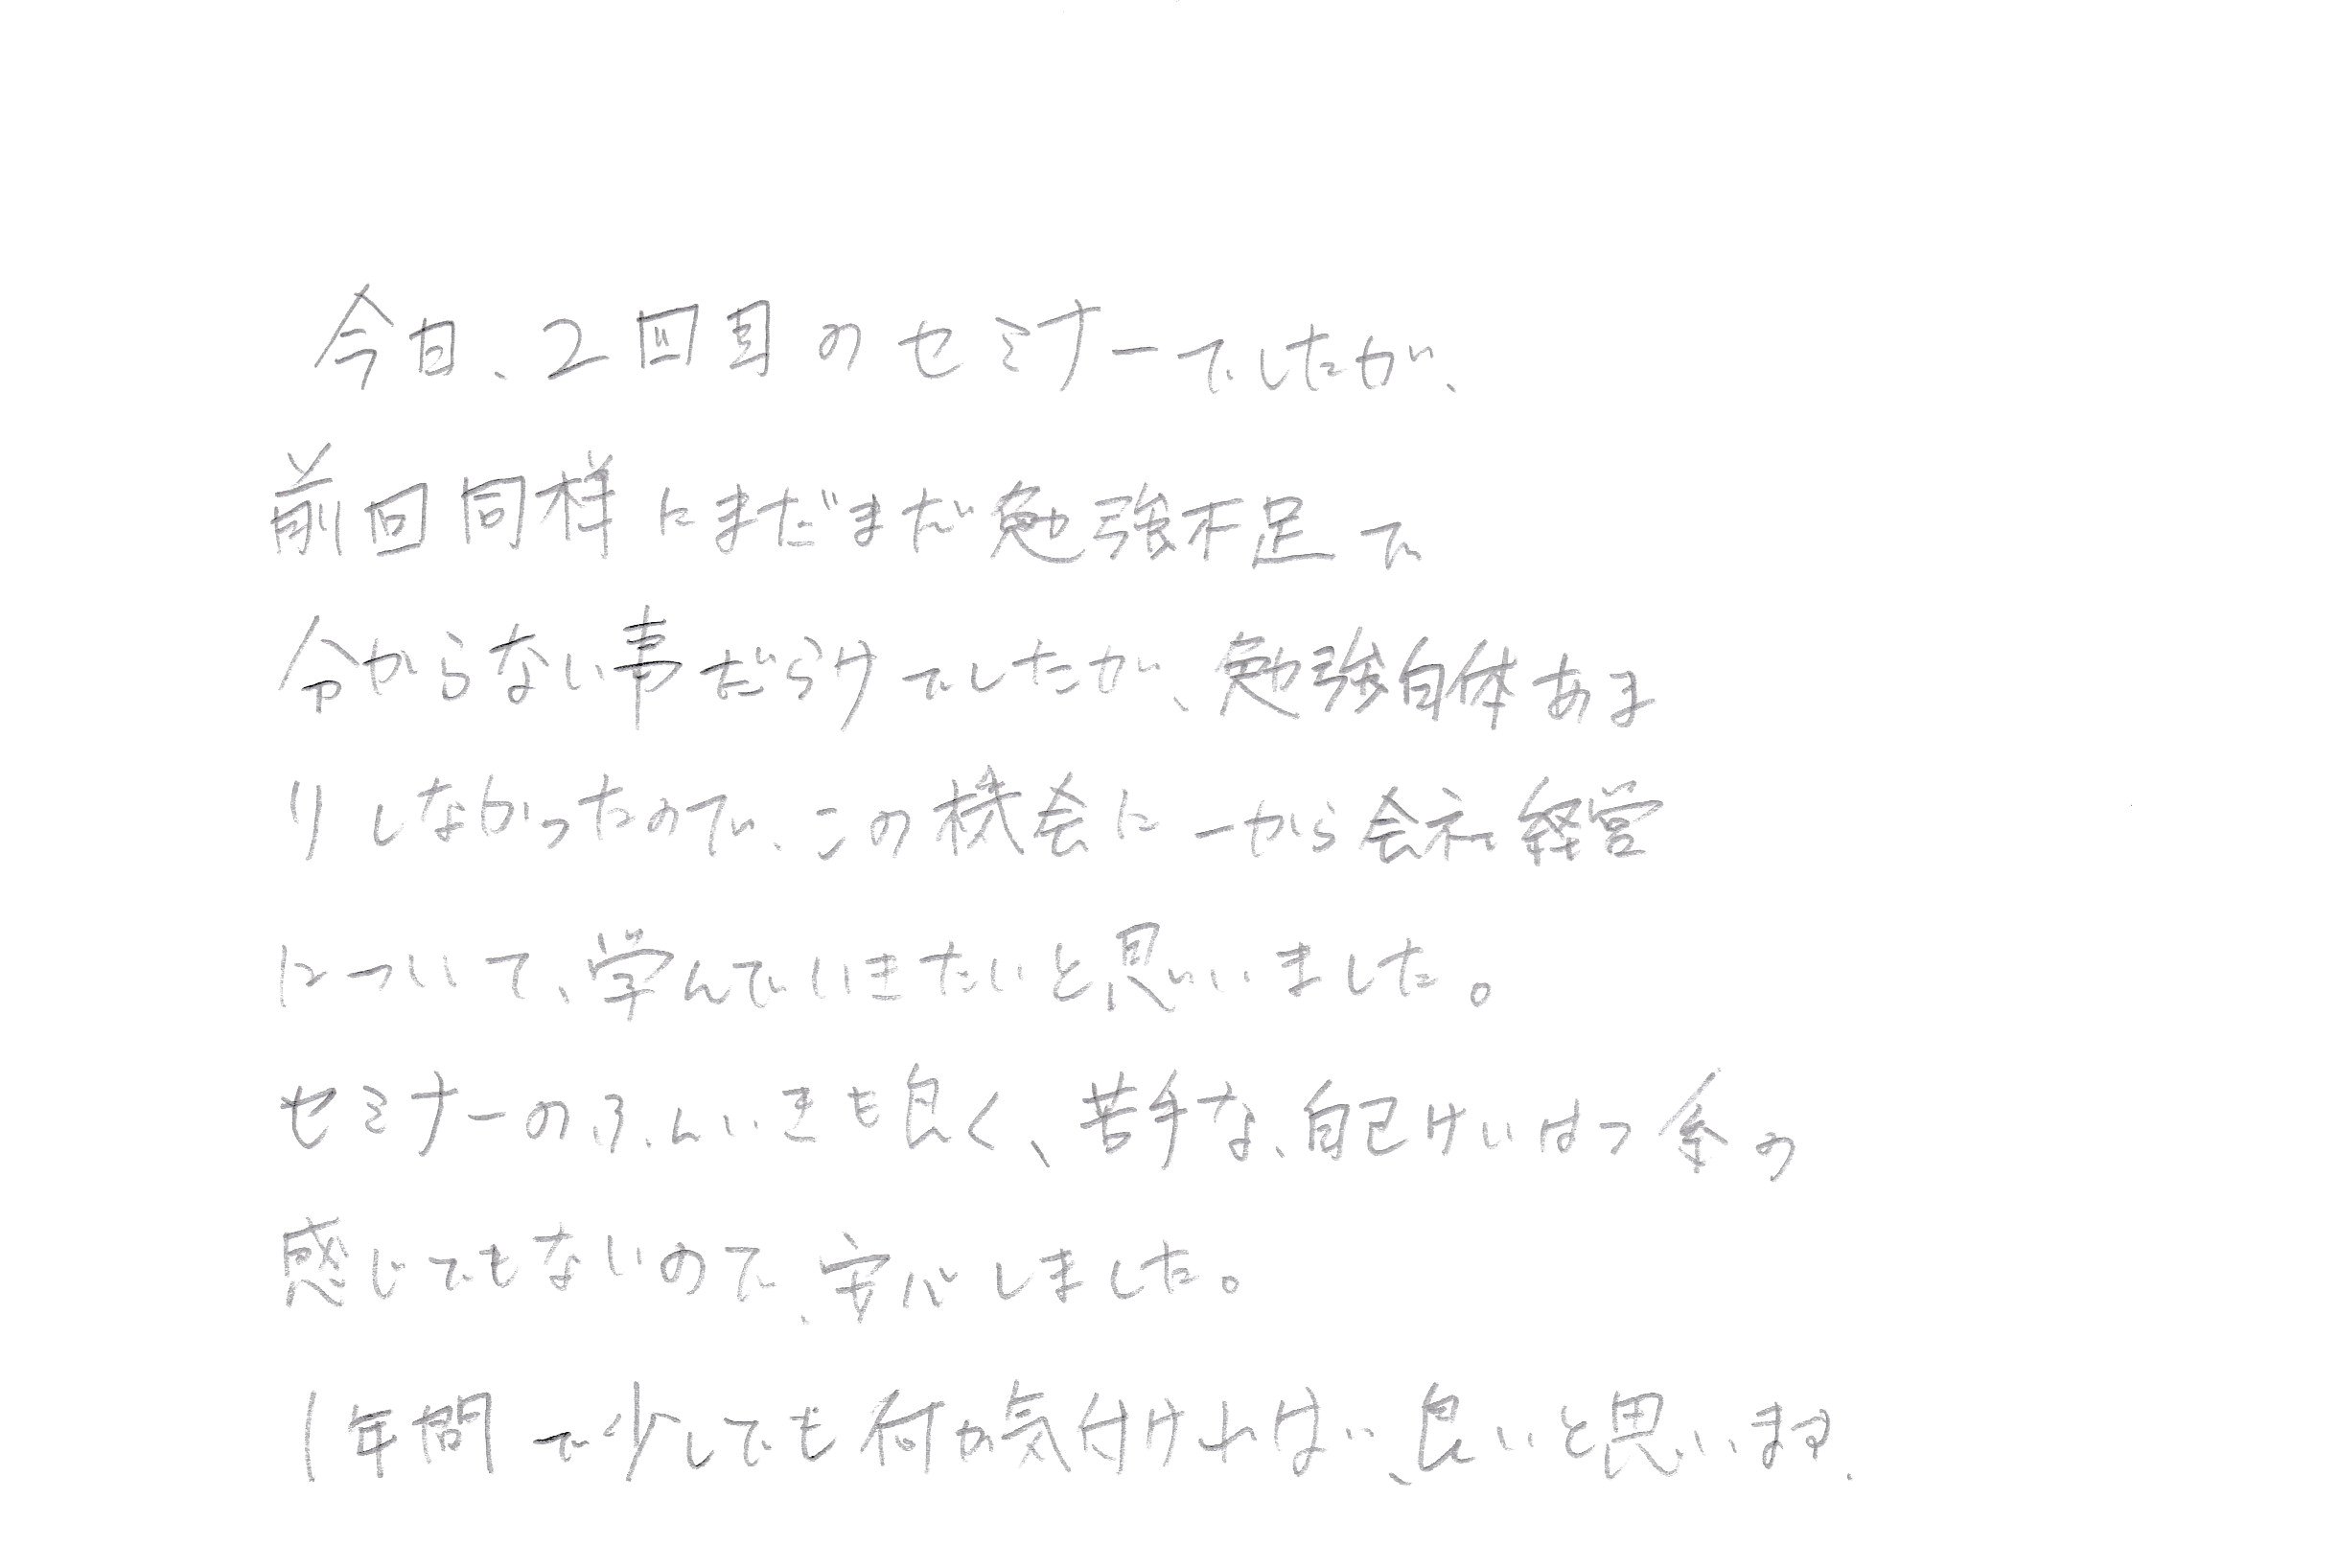 今日、2回目のセミナーでしたが、
前回同様にまだまだ勉強不足で
分からない事だらけでしたが、勉強自体あま
りしなかったので、この機会に一から会社経営
について、学んでいきたいと思いました。
セミナーのふんいきも良く、苦手な、自己けいはつ系の
感じでもないので、安心しました。
1年間で少しでも何か気付ければ、良いと思います.